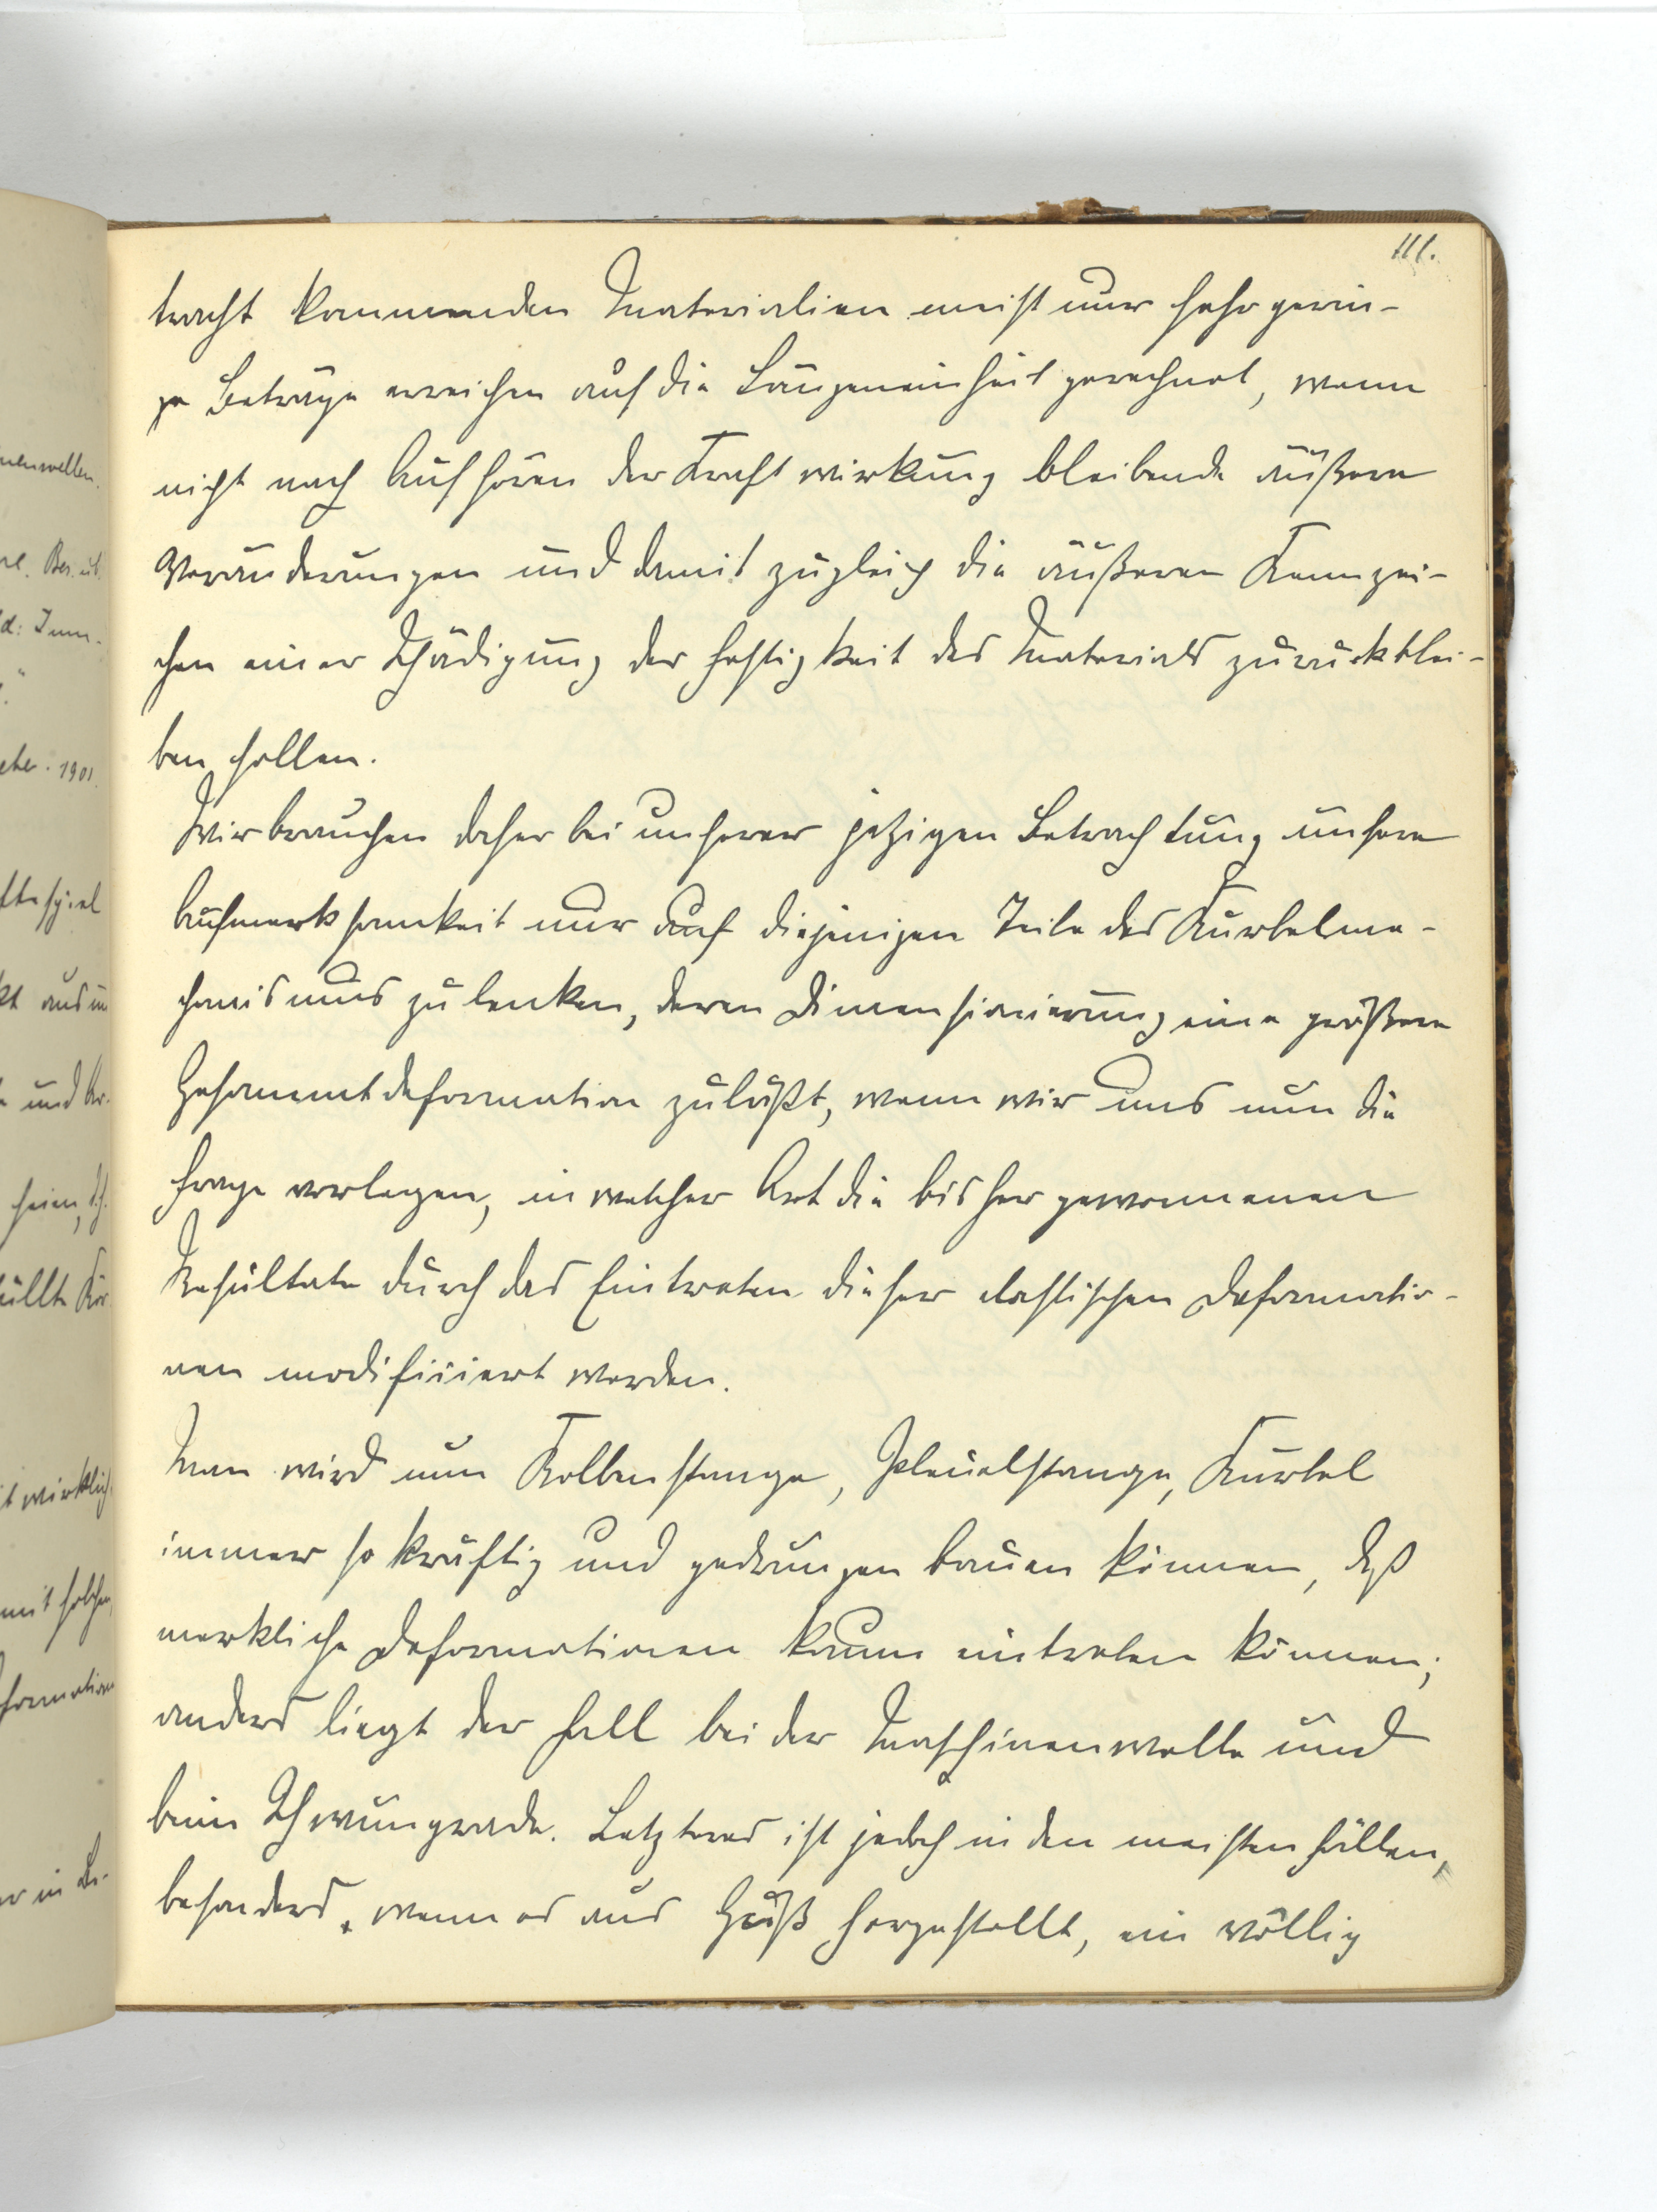 111.
tracht kommenden Materialien meist nur sehr gerin-
ge Beträge erreichen auf die Längeneinheit gerechnet, wenn
nicht nach Aufhören der Kraftwirkung bleibende äußere
Veränderungen und damit zugleich die äußeren Kennzei-
chen einer Schädigung der Festigkeit des Materials zurückblei-
ben sollen.
Wir brauchen daher bei unserer jetzigen Betrachtung unsere
Aufmerksamkeit nur auf diejenigen Teile des Kurbelme-
chanismus zu lenken, deren Dimensionierung eine größere
Gesammtdeformation zuläßt, wenn wir uns nun die
Frage vorlegen, in welcher Art die bisher gewonnenen
Resultate durch das Eintreten dieser elastischen Deformatio-
nen modifiziert werden.
Man wird nun Kolbenstange, Pleuelstange, Kurbel
immer so kräftig und gedrungen bauen können, daß
merkliche Deformationen kaum eintreten können;
anders liegt der Fall bei der Maschinenwelle und
beim Schwungrade. Letzteres ist jedoch in den meisten Fällen,
besonders, wenn es aus Guß hergestellt, ein völlig